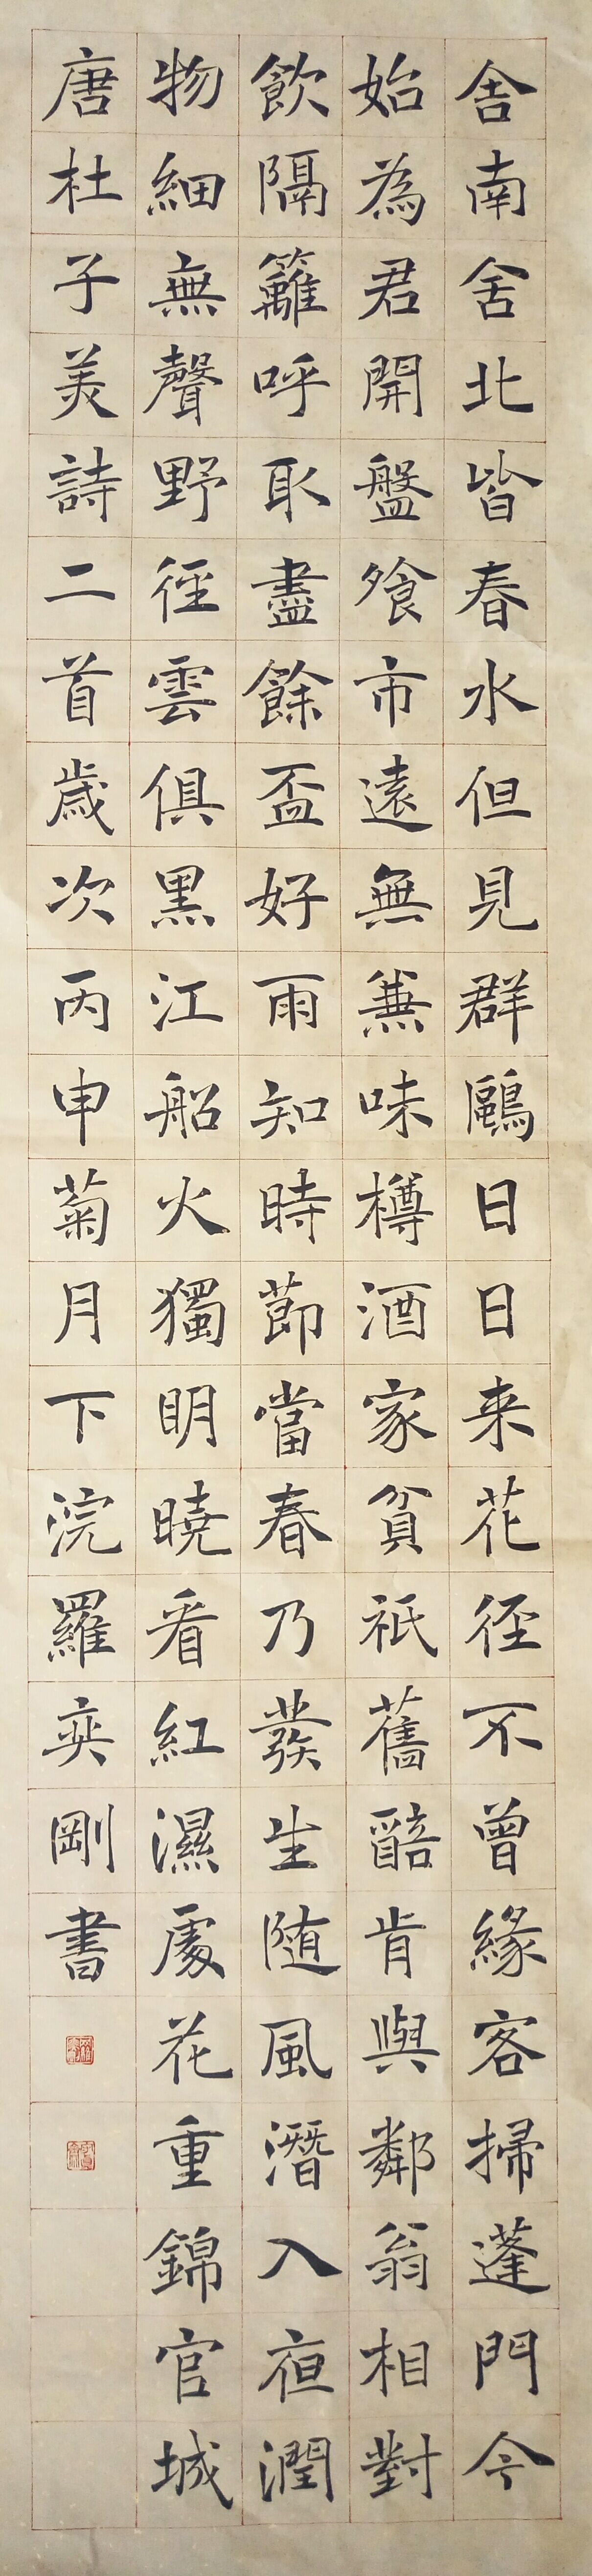 舍南舍北皆春水但見群鷗日日来花徑不曾緣客掃蓬門今
始為君開盤飧市遠無兼味樽酒家貧祇舊醅肯與鄰翁相對
飲隔籬呼取盡餘盃好雨知時節當春乃發生随風潛入夜潤
物細無聲野徑雲俱黑江船火獨明曉看紅濕處花重錦官城
唐杜子美詩二首歲次丙申菊月下浣羅奕剛書